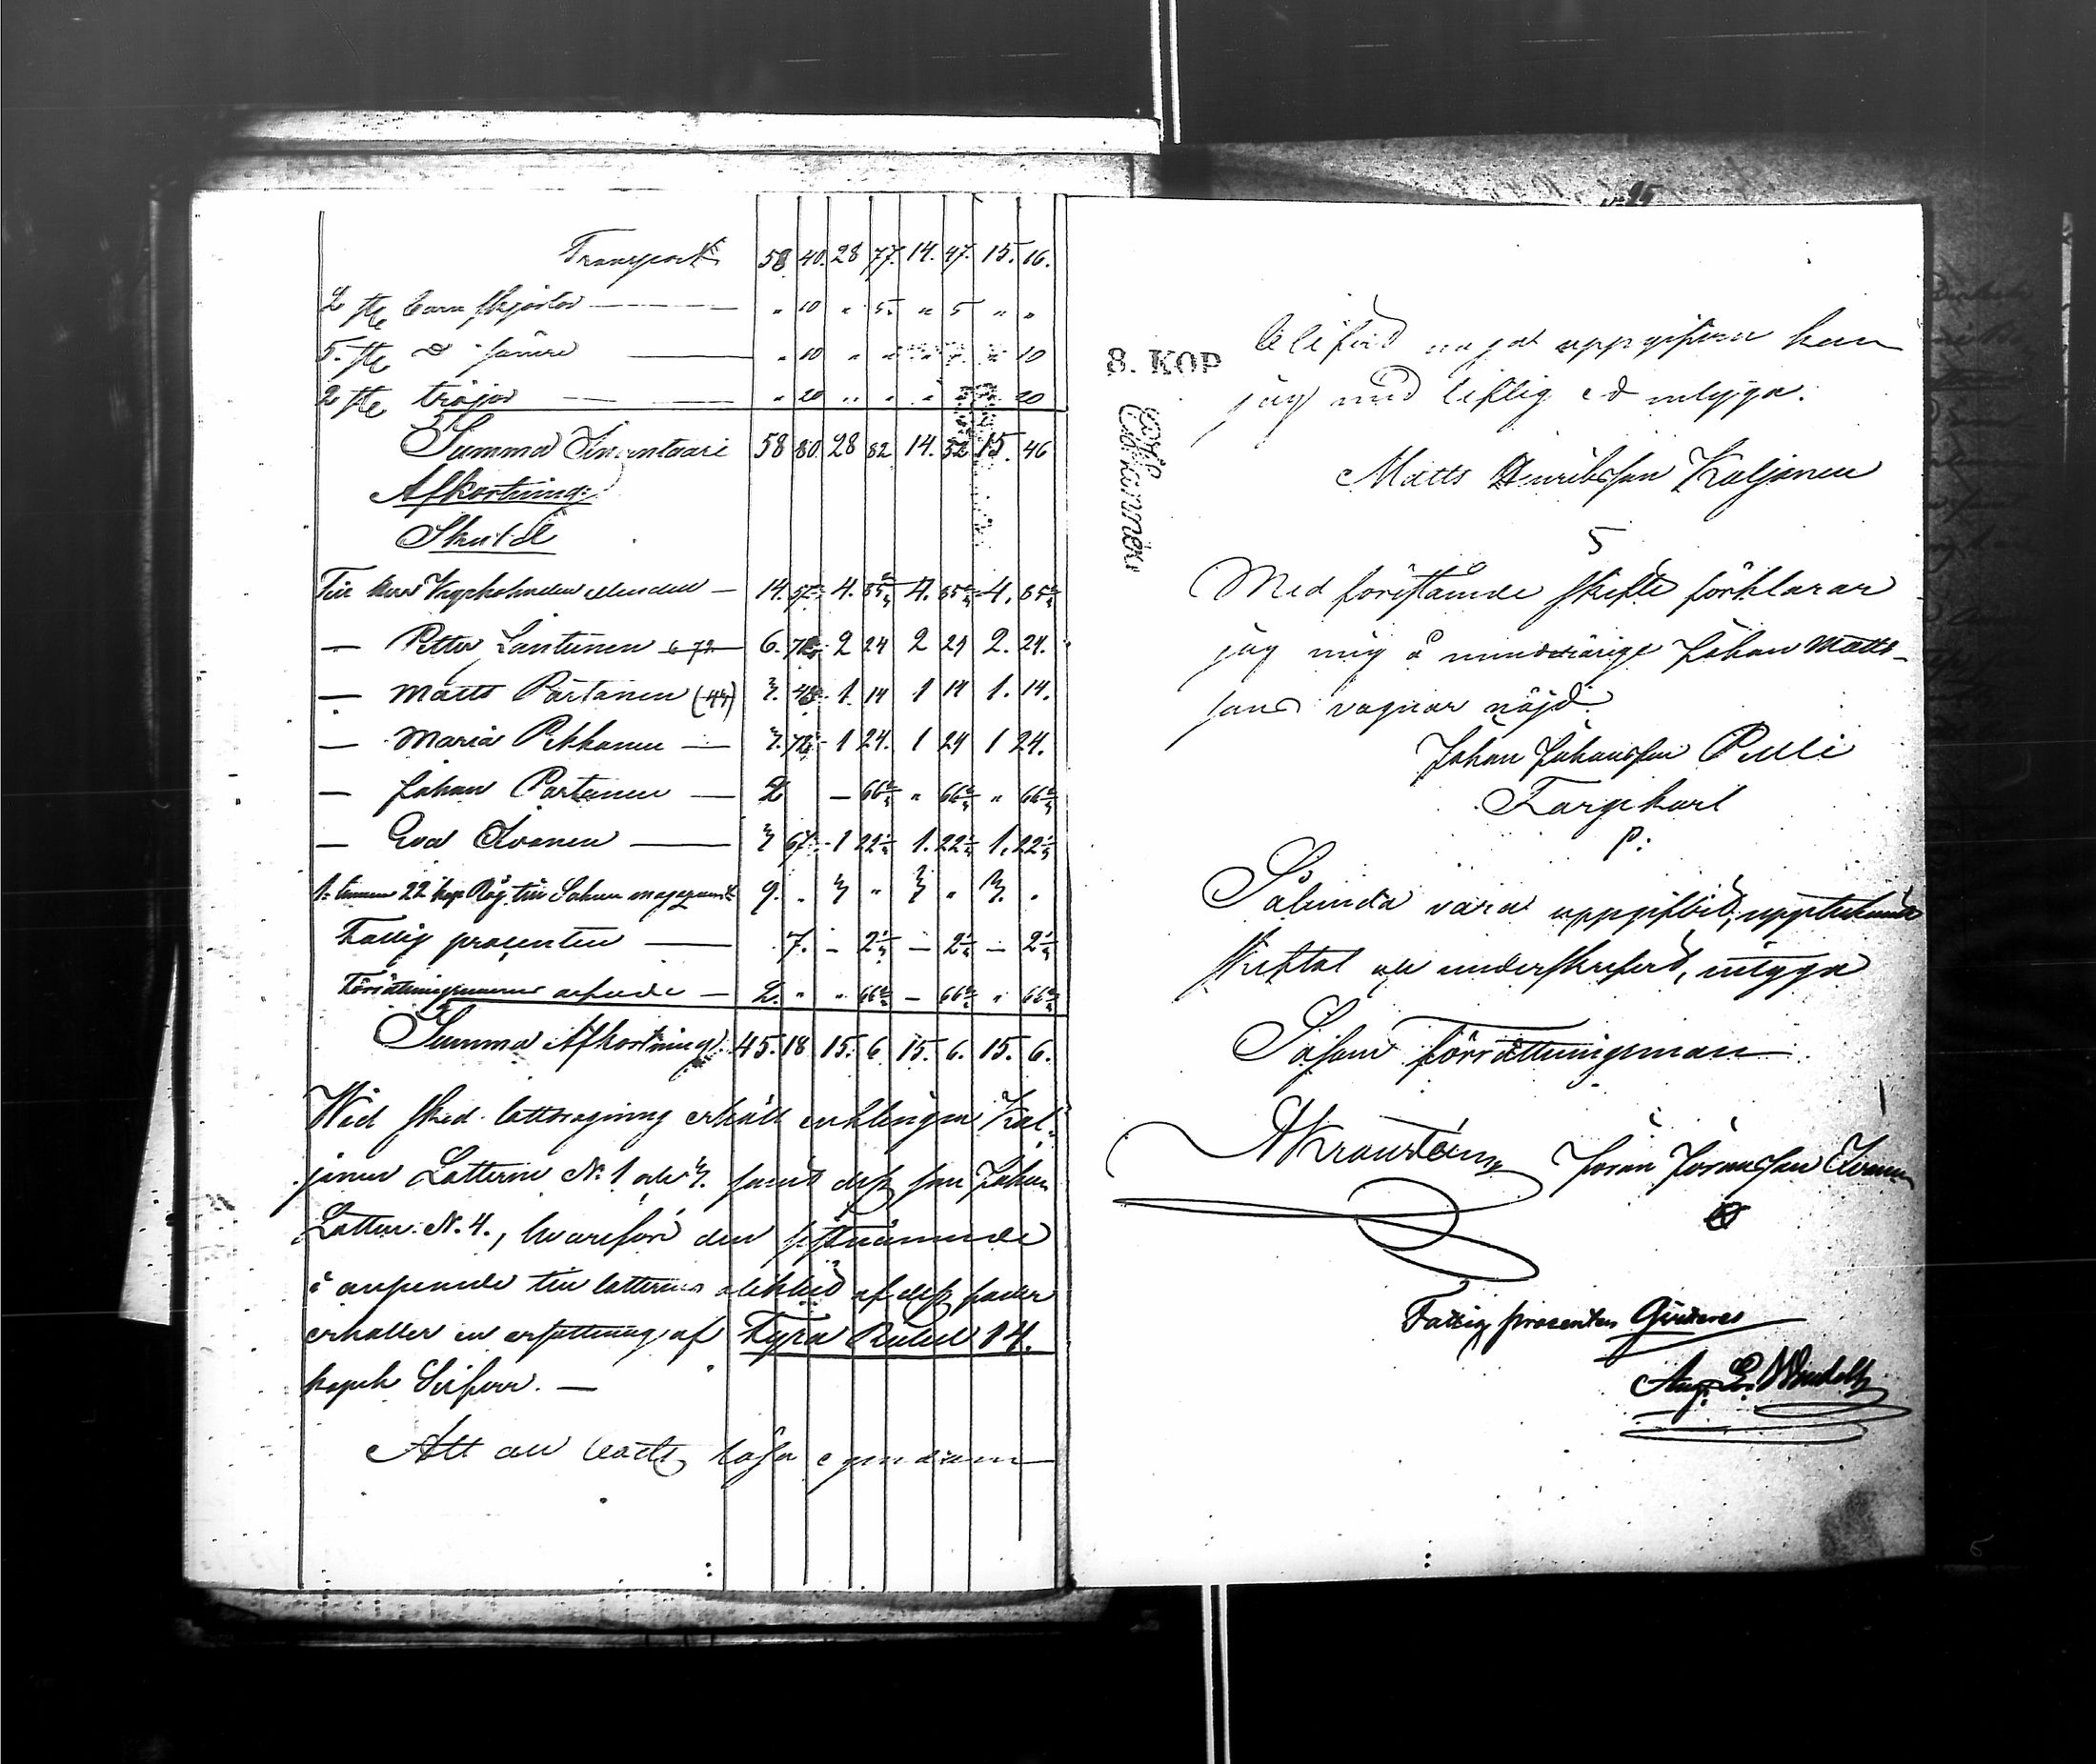 Transport 58. 40. 28 77. 14. 47. 15. 16.
2 st barn skjortor — " 10 " 5. " 5 " "
5. st d:o sämre — " 10 " " 10
2 st tröjor — " 20 " " 20
Summa Inventarii 58 80. 28 82. 14. 52 15. 46
Afkortning:
Skuld
Till — 14. 57. 4. 85 2/3 4. 85 2/3 4. 85 2/3
— Petter Lantunen 6 72 6. 72. 2 24 2 24 2. 24.
— Matts Partanen 3. 42. 1. 14 1 14 1. 14.
— Maria Pekkanen — 3. 72. 1 24. 1 24 1 24.
— Johan Partanen — 2 — 66 2/3 " 66 2/3 " 66 2/3
— Eva Ikonen — 3 67. 1 22 1/3 1. 22 1/3 1. 22 1/3
1 tunna 22 kap Råg till Sokne magazinet 9. " 3 " 3 " 3. "
Fattig procenten — 7. — 2 1/3 — 2 1/3 — 2 1/3
Förrättningsmannens arfvode — 2. " " 66 2/3 — 66 2/3 " 66 2/3
Summa Afkortning. 45. 18 15. 6 15. 6. 15. 6.
Wid sked lottdragning erhöll enklingen Kol-
jonen Lotterne No 1 och 3. samt dess son Johan
Lotten No 4., hvarföre den sistnämnde
i anseende till lotternas olikhet af dess fader
erhåller en ersättning af Fyra Rubel 14.
kopek Silfver. —
Att all bodts lösa egendom
8. KOP
blifvit uppgifven kan
jag med liflig ed intyga.
Matts Henriksson Koljonen
Med förestående skifte förklarar
jag mig å minderårige Johan Matts-
sons vägnar nöjd.
Johan Johansson Pulli
Torpkarl
Sålunda vara uppgifvit, upptecknat
skiftat och underskrifvit, intyga
Såsom förrättningsman
Jöran Jöransson Ikonen
Fattig procenten Qvitteras